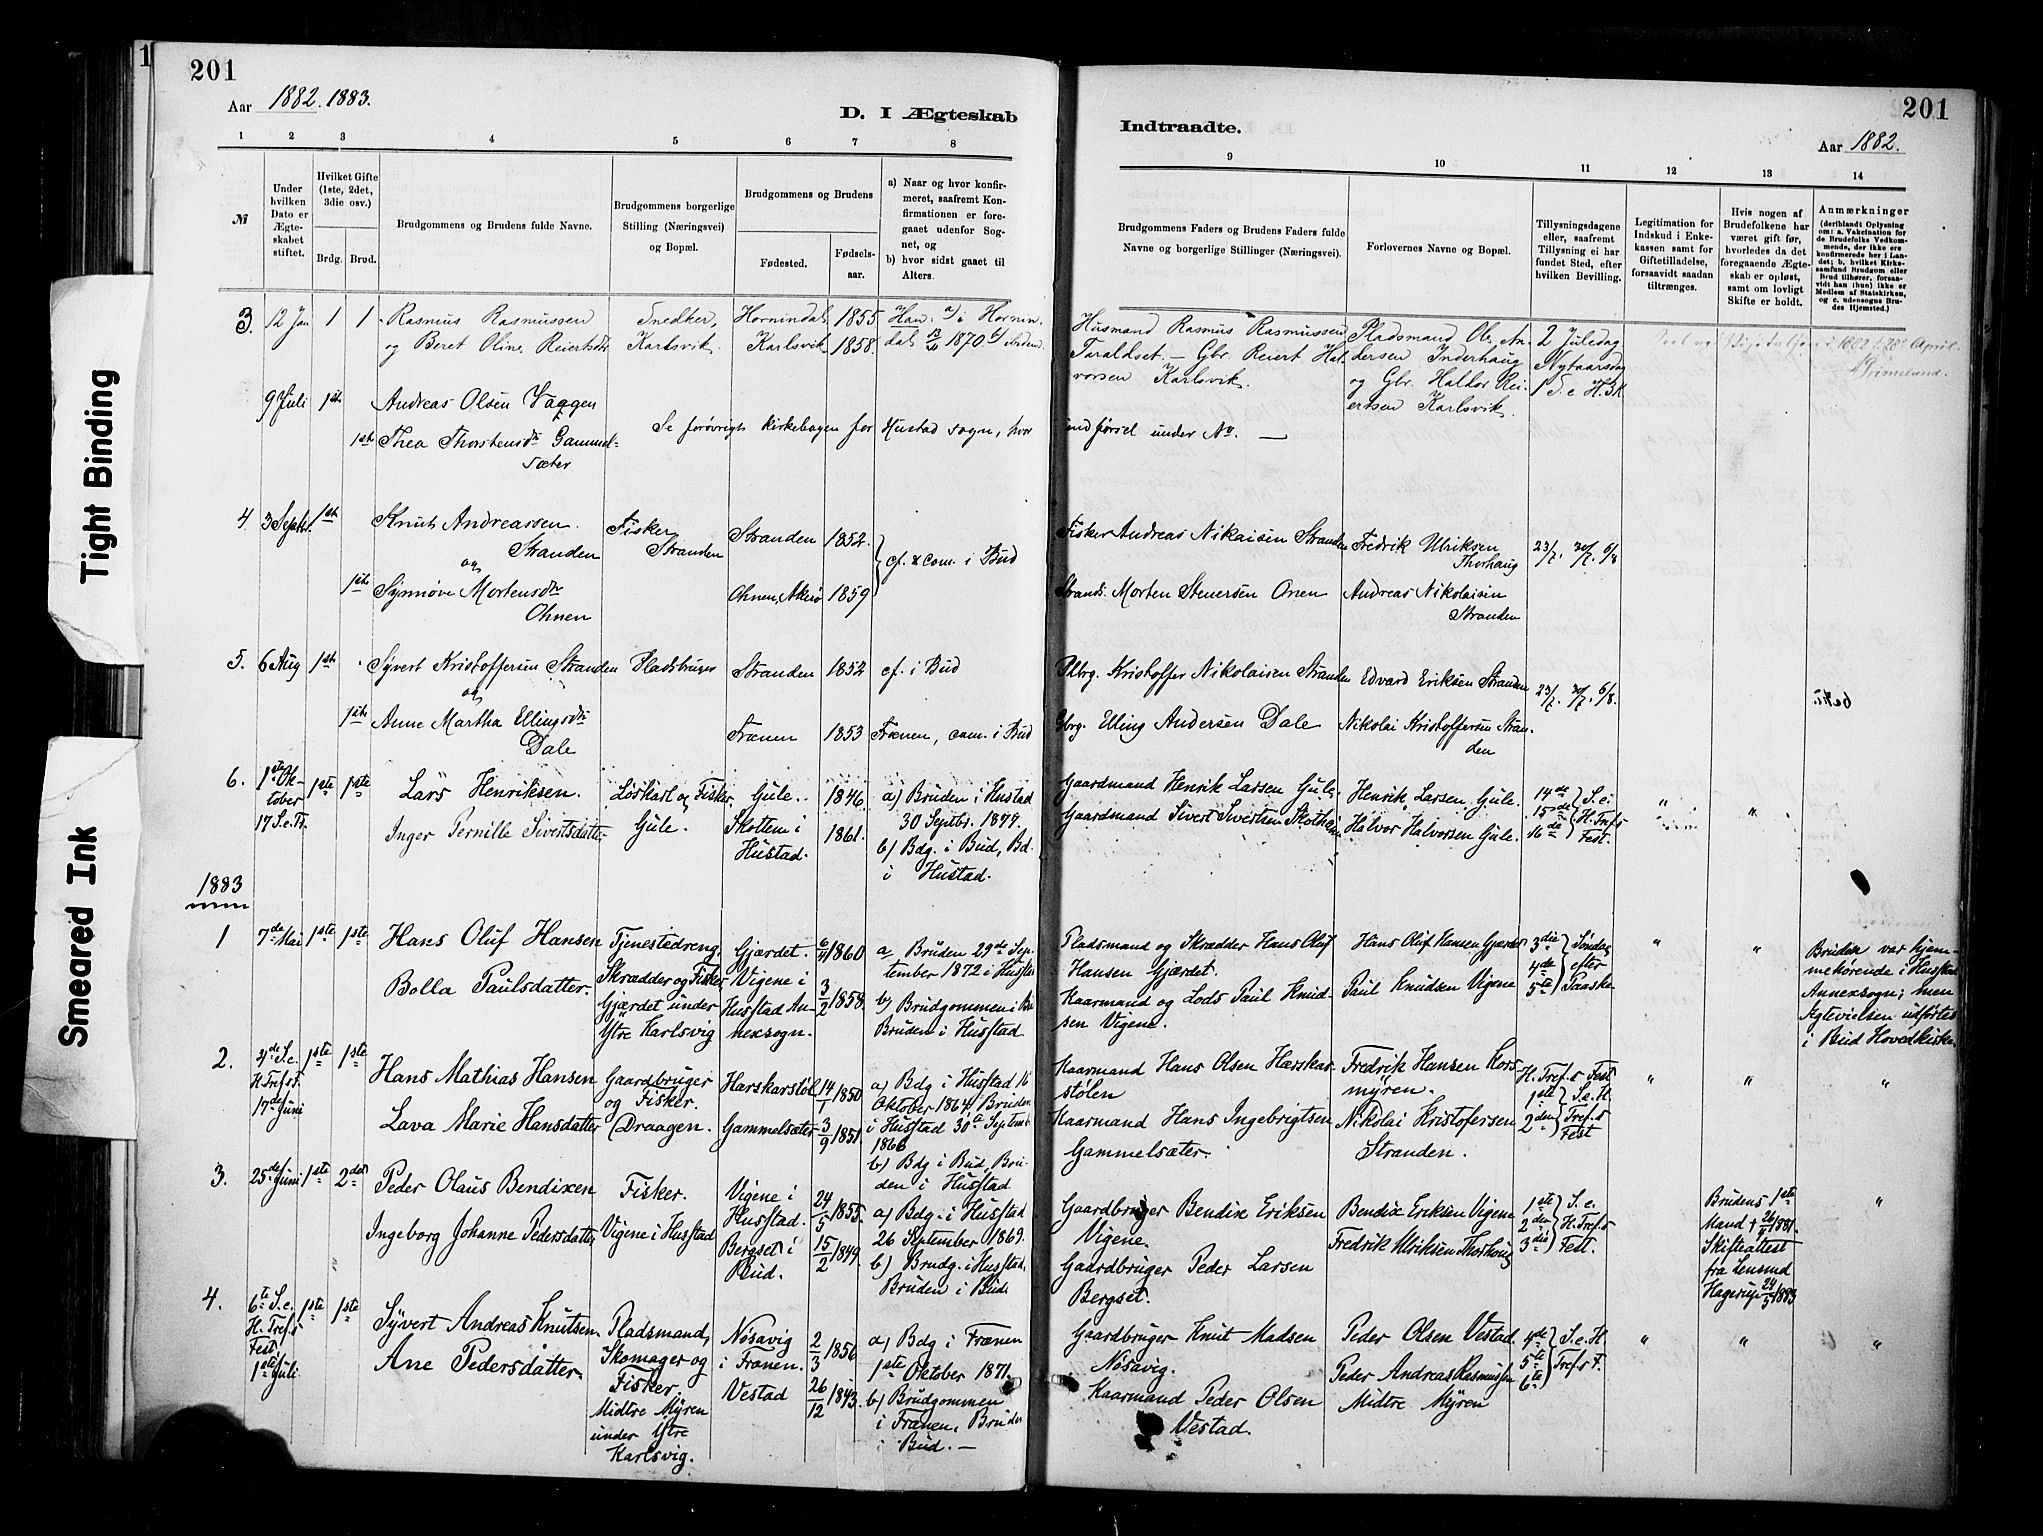 Tight Binding
Smeared Ink
201
Aar 1882. 1883.
D. I Ægteskab
1 2 3 4 5 6 7 8
№
Under hvilken Dato er Ægteskabet stiftet.
Hvilket Gifte (1ste, 2det, 3die osv.)
Brdg. Brud.
Brudgommens og Brudens fulde Navne.
Brudgommens borgerlige Stilling (Næringsvei) og Bopæl.
Brudgommens og Brudens
Fødested.
Fødselsaar.
a) Naar og hvor konfirmeret, saafremt Konfirmationen er foregaaet udenfor Sognet, og
b) hvor sidst gaaet til Alters.
3. 12 Jan 1 1 Rasmus Rasmussen Snedker, Hornindal 1855 Han: a) i Hornin-
og Beret Oline Reiertsdtr Karlsvik. Karlsvik 1858. dal 1870 b)
9 Juli 1ste Andreas Olsen Vaggen
1st. Thea Thorstensdtr Gammel- Se forøvrigt kirkebogen for Hustad sogn, hvor
sæter
4. 3 Septbr. 1ste Knut Andreassen Fisker Stranden 1852.
Stranden Stranden
og cf. & com. i Bud
1ste Synnøve Mortensdtr Ohnen, Akerø 1859
Ohnen
5. 6 Aug 1ste Syvert Kristoffersen Stranden Pladsbruger Stranden 1852 cf. i Bud
og
1ste Anne Martha Ellingsdtr Frænen 1853 Frænen, com. i Bud
Dale
6. 1ste Ok- 1ste 1ste Lars Henriksen. Løskarl og Fisker, Gule. 1846. a) Bruden i Hustad
tober 30 Septbr. 1877.
17 S. e. Tr. Inger Pernille Sivertsdatter Gule. Skottem i 1861. b) Bdg. i Bud, Bd.
Hustad. i Hustad.
1883
1 7de Mai 1ste 1ste Hans Oluf Hansen Tjenestedreng, Gjærdet. 6/4 1860 a Bruden 29de Sep-
Skrædder og Fisker, Vigene i tember 1872 i Hustad
Bolla Paulsdatter. Gjærdet under Husstad An- 3/2 1858. b) Brudgommen i Bud
Ytre Karlsvig nexsogn. Bruden i Husstad.
2. 4de S. e. 1ste 1ste Hans Mathias Hansen Gaardbruger Harskarstøl 14/1 1850 a) Bdg i Husstad 16
H. Tref. s F. og Fisker. Oktober 1864. Bruden
17de Juni Lava Marie Hansdatter Draagen. Gammelsæter 3/9 1851. i Husstad 30te Septemb.
1866
b) Bdg i Bud, Bru-
den i Husstad
3. 25de Juni 1ste 2det Peder Olaus Bendixen Fisker. Vigene i 24/5 1855. a) Bdg. i Husstad
Husstad. 26 September 1869.
Ingeborg Johanne Pedersdatter Vigene i Husstad Bergset i 15/2 1849. b) Brudg. i Husstad,
Bud. Bruden i Bud.
4. 6te S. e. 1ste 1ste Syvert Andreas Knutsen. Pladsmand, Nøsavig 2/3 1856 a) Bdg i Frænen
H. Tref. s Skomager og i Frænen. 1ste Oktober 1871.
Fest Ane Pedersdatter. Fisker Vestad 26/12 1843. b) Brudgommen
1ste Juli. Midtre Myren i Frænen, Bruden
under Ytre i Bud.
Karlsvig.
201
Indtraadte.
Aar 1882.
9 10 11 12 13 14
Brudgommens Faders og Brudens Faders fulde Navne og borgerlige Stillinger (Næringsvei).
Forlovernes Navne og Bopæl.
Tillysningsdagene eller, saafremt Tillysning ei har fundet Sted, efter hvilken Bevilling.
Legitimation for Indskud i Enkekassen samt for Giftetilladelse, forsaavidt saadan tiltrænges.
Hvis nogen af Brudefolkene har været gift før, hvorledes da det foregaaende Ægteskab er opløst, samt om lovligt Skifte er holdt.
Anmærkninger
(deriblandt Oplysning om: a. Vakcination for de Brudefolks Vedkommende, der ikke ere konfirmerede her i Landet; b. hvilket Kirkesamfund Brudgom eller Brud tilhører, forsaavidt han (hun) ikke er Medlem af Statskirken, og c. udensogns Brudes Hjemsted.)
Husmand Rasmus Rasmussen Pladsmand Ole An- 2 Juledag
Taraldset. — Gbr. Reiert Hal- dersen Inderhaug Nytaarsdag
vorsen Karlsvik. og Gbr. Haldor Rei- 1 S. e H. 3 K
ertsen Karlsvik.
1882 d. 28 April.
Grimeland.
indførsel under No. —
Fisker Andreas Nikaisen Stranden Fredrik Ulriksen 23/7. 30/7. 6/8
Thorhaug
Strands. Morten Stenersen Onen Andreas Nikolaisen
Stranden
Plbrg. Kristoffer Nikolaisen Stranden Edvard Eriksen Stranden 23/7. 30/7. 6/8.
Gbrg. Elling Andersen Dale Nikolai Kristoffersen Stran-
den
Gaardmand Henrik Larsen Gule. Henrik Larsen Gule. 14de S. e. " "
15de H. Tref. s
Gaardmand Sivert Sivertsen Skothem Halvor Halvorsen Gule. 16de Fest.
Pladsmand og Skrædder Hans Oluf Hans Oluf Hansen Gjærdet 3die Søndag " " Bruden var hjem-
Hansen Gjærdet. 4de efter mehørende i Husstad
Kaarmand og Lods Paul Knud- Paul Knudsen Vigene 5te Paaske Annexsogn; men
sen Vigene. Ægtevielsen udførtes
i Bud Hovedkirke.
Kaarmand Hans Olsen Harskar- Fredrik Hansen Kors- H. Tref. s Fest " " "
stølen myren. 1ste S. e. H
Kaarmand Hans Ingebrigtsen Nikolai Kristofersen 2den Tref. s
Gammelsæter. Stranden. Fest
Gaardbruger Bendix Eriksen Bendix Eriksen Vigene 1ste S. e. Brudens 1ste "
Vigene. 2den H. Tref. s Mand † 1881.
Fredrik Ulriksen Thorhaug 3die Fest. Skifteattest
Gaardbruger Peder Larsen fra Lensmd
Bergset. Hagerup 24/5 1883
Gaardbruger Knut Madsen Peder Olsen Vestad. 4de S. e. H. " " "
Nøsavig. 5te Tref. s F.
Kaarmand Peder Olsen Peder Andreas Rasmussen 6te
Vestad. Midtre Myren